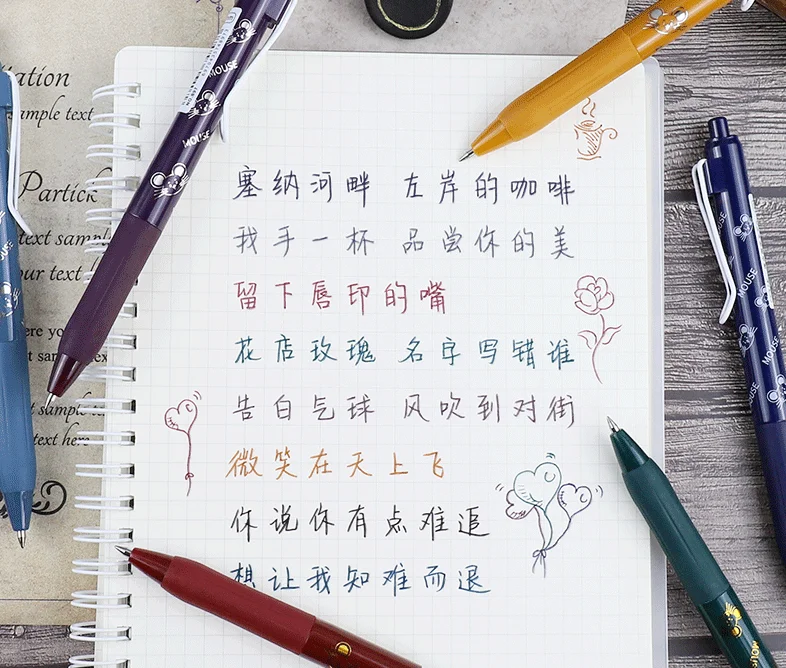 iation
ample text
Partick
text sampl
our text
ere yo
t sam
xt sample
text here
MOUSE
MOUSE
塞纳河畔 左岸的咖啡
我手一杯 品尝你的美
留下唇印的嘴
花店玫瑰 名字写错谁
告白气球 风吹到对街
微笑在天上飞
你说你有点难追
想让我知难而退
MOUSE
MOUSE
MOUSE